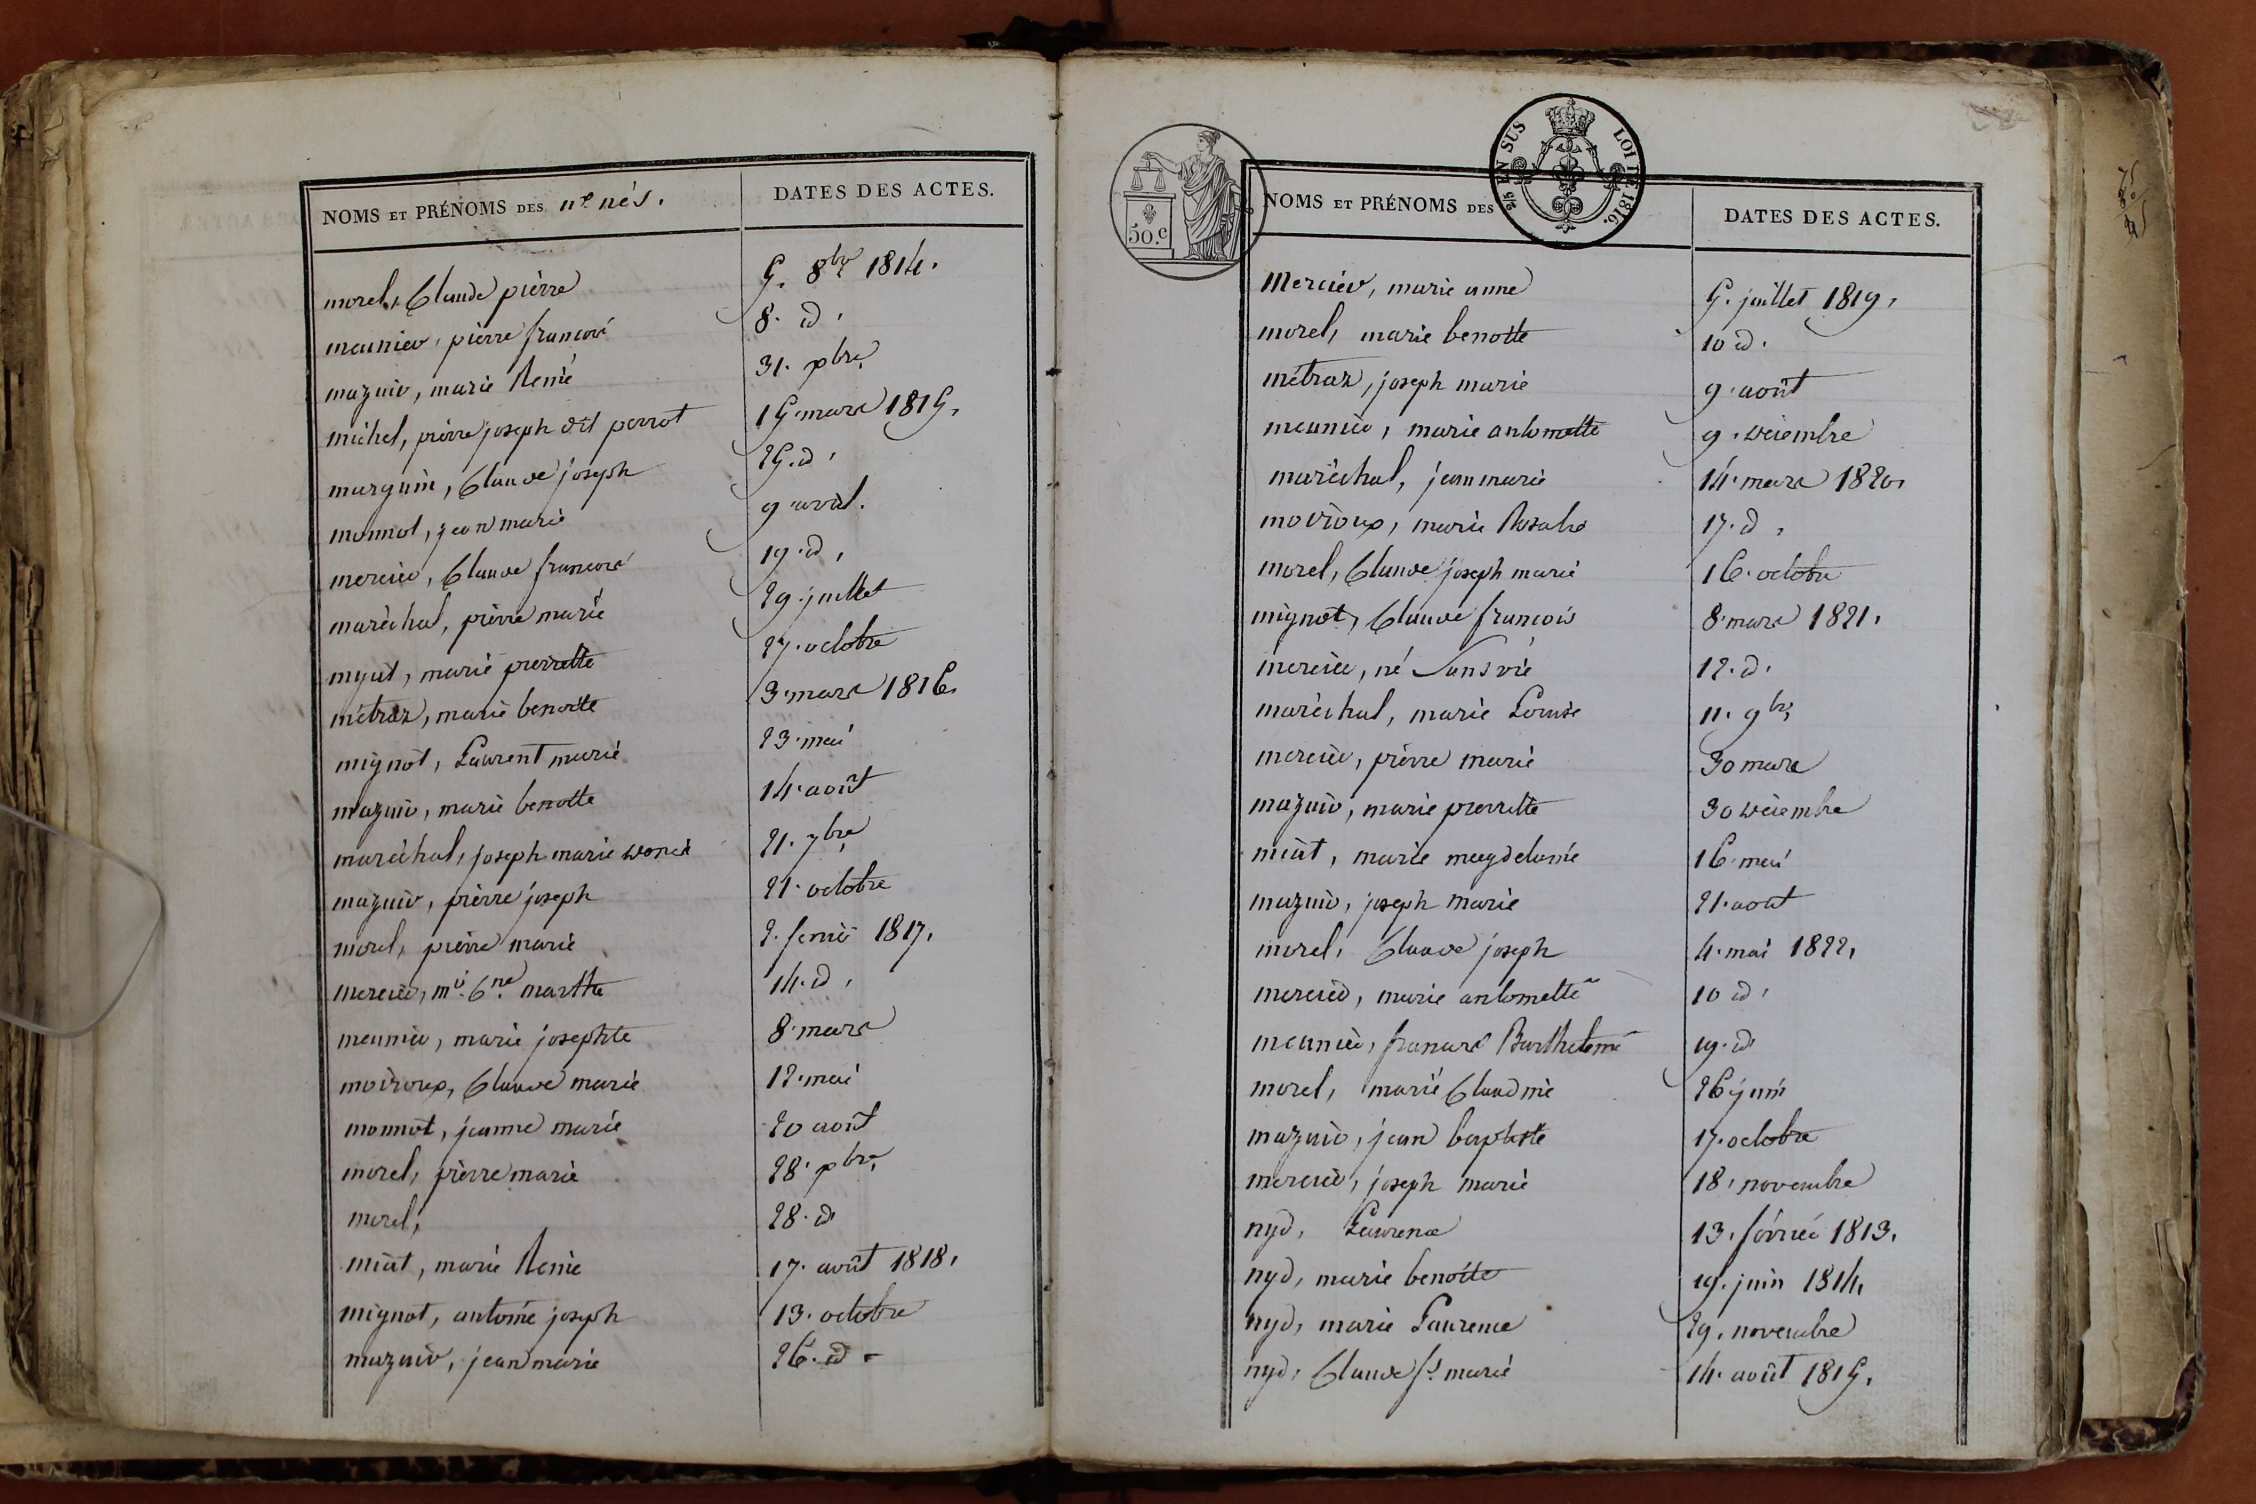 NOMS ET PRÉNOMS DES n.és nés. DATES DES ACTES.
morel, Claude pierre 5. 8bre 1814.
meunier, pierre francois 8. id.
mazuir, marie Renié 31. xbre
michel, pierre joseph dit perrot 15. mars 1815.
marguin, Claude joseph 25. id.
monnot, jean marie 9 avril.
mercier, Claude francois 19. id.
maréchal, pierre marie 29. juillet
myat, marie pierrette 27. octobre
métraz, marie benoite 3. mars 1816.
mignot, Laurent marie 23. mai
mazuir, marie benoite 14. août
maréchal, joseph marie 21. 7bre
mazuir, pierre joseph 21. octobre
morel, pierre marie 2. fevrier 1817.
mercier, marthe 14. id.
meunier, marie josephte 8. mars
moiroux, Claude marie 12. mai
monnot, jeanne marie 20 août
morel, pierre marie 28. xbre
morel, 28. id
miat, marie Renie 17. août 1818.
mignot, antoine joseph 13. octobre
mazuir, jean marie 26. id
2/5 EN SUS LOI DE 1816.
50.c
NOMS ET PRÉNOMS DES DATES DES ACTES.
Mercier, marie anne 5. juillet 1819.
morel, marie benoite 10 id.
métraz, joseph marie 9. août
meunier, marie antoinette 9. décembre
maréchal, jean marie 14. mars 1820.
moiroux, marie Rosalie 17. id.
morel, Claude joseph marie 16. octobre
mignot, Claude francois 8. mars 1821.
mercier, né Sans vie 12. id.
maréchal, marie Louise 11. 9bre
mercier, pierre marie 30 mars
mazuir, marie pierrette 30 décembre
miat, marie magdelaine 16. mai
mazuir, joseph marie 21. août
morel, Claude joseph 4. mai 1822.
mercier, marie antoinette 10 id.
meunier, francois Barthelemi 19. id
morel, marie Claudine 26 juin
mazuir, jean baptiste 17. octobre
mercier, joseph marie 18. novembre
nyd, Laurence 13. février 1813.
nyd, marie benoite 19. juin 1814.
nyd, marie Laurence 29. novembre
nyd, Claude fs marie 14. août 1815.